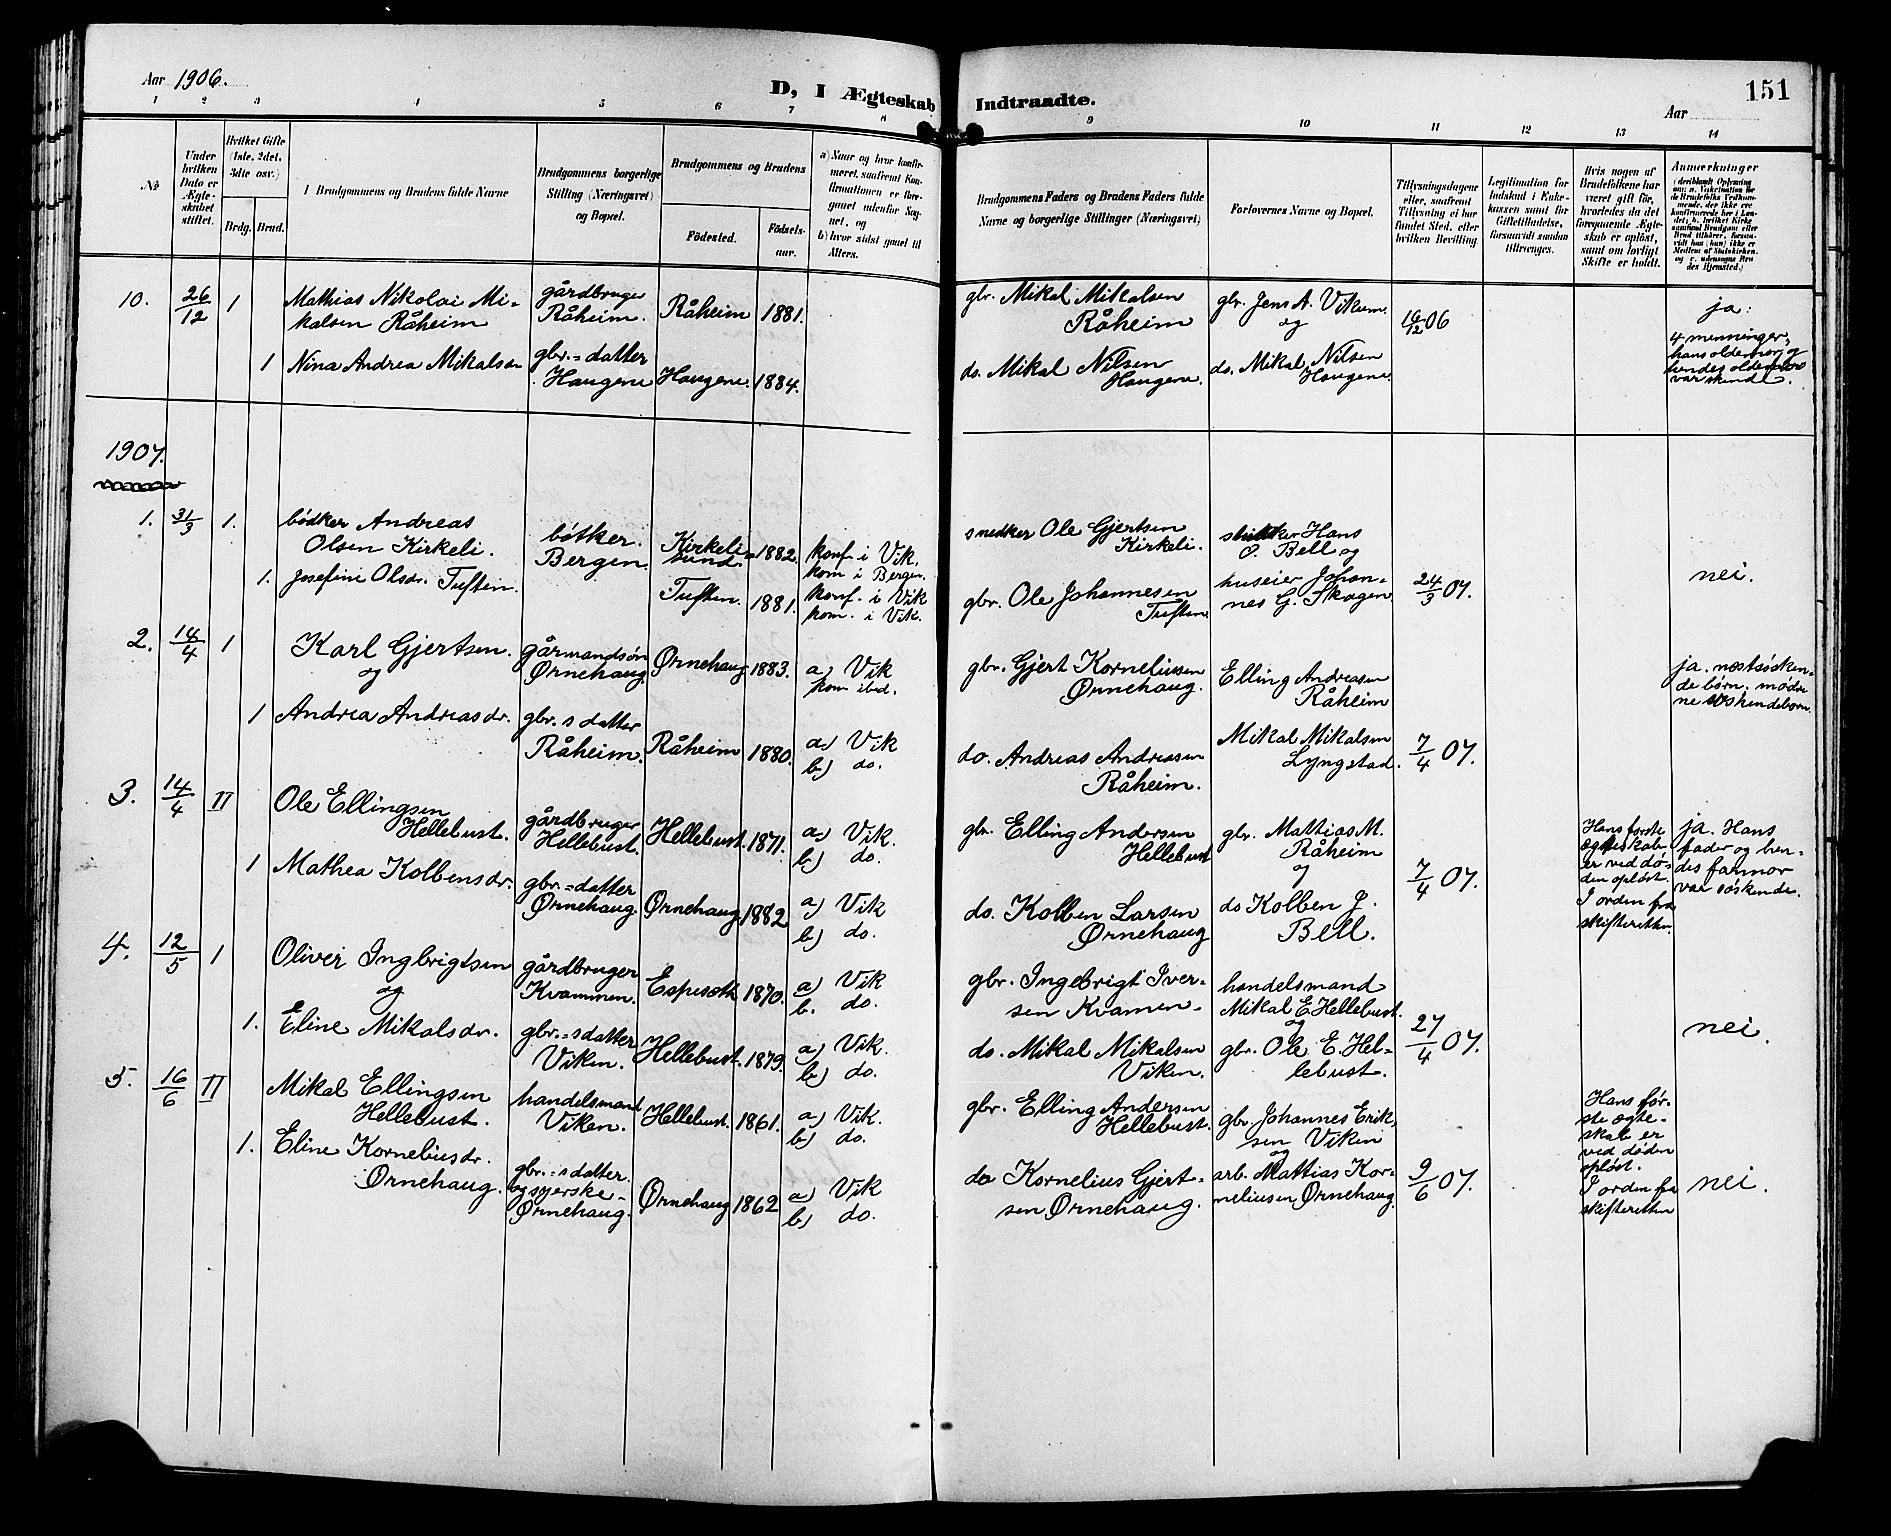 Aar 1906.
D, I Ægteskab Indtraadte.
Aar
151
1 2 3 4 5 6 7 8 9 10 11 12 13 14
No
Under hvilken Dato er Ægteskabet stiftet.
Hvilket Gifte (1ste, 2det, 3die osv.)
Brdg. Brud.
Brudgommens og Brudens fulde Navne
Brudgommens borgerlige Stilling (Næringsvei) og Bopæl.
Brudgommens og Brudens
Födested.
Födsels-aar.
a) Naar og hvor konfirmeret, saafremt Konfirmationen er foregaaet udenfor Sognet, og
b) hvor sidst gaaet til Alters.
Brudgommens Faders og Brudens Faders fulde Navne og borgerlige Stillinger (Næringsvei)
Forlovernes Navne og Bopæl.
Tillysningsdagene eller, saafremt Tillysning ei har fundet Sted, efter hvilken Bevilling.
Legitimation for Indskud i Enkekassen samt for Giftetilladelse, forsaavidt saadan tiltrænges.
Hvis nogen af Brudefolkene har været gift för, hvorledes da det foregaaende Ægteskab er oplöst, samt om lovligt Skifte er holdt.
Anmærkninger
10. 26/12 1 Mathias Nikolai Mi-
kalsen Råheim
gårdbruger
Råheim.
Råheim 1881.
gbr. Mikal Mikalsen
Råheim
gbr. Jens A. Vikum
og
16/12 06
ja:
1 Nina Andrea Mikalsdr
gbr.=datter
Haugene
Haugene. 1884.
do. Mikal Nilsen
Haugene.
do. Mikal Nilsen
Haugene.
4 menninger,
hans oldemor og
hendes oldemor
var skende.
1907.
1. 31/3 1. bødker Andreas
Olsen Kirkeli.
bøtker.
Bergen.
Kirkeli=
sund
1882.
konf. i Vik.
kom i Bergen.
snedker Ole Gjertsen
Kirkeli.
Hans
O. Bell og
1. Josefine Olsdr. Tuften.
Tuften. 1881.
konf. i Vik
kom. i Vik.
gbr. Ole Johannesen
Tuften
huseier Johan=
nes G. Skogen
24/3 07.
nei.
2. 14/4 1 Karl Gjertsen.
og
gårmandsøn
Ørnehaug
Ørnehaug 1883.
a) Vik
kom ibid.
gbr. Gjert Korneliussen
Ørnehaug.
Elling Andreasen
Råheim
ja. næstsøsken-
de børn. mødre
ne søskendebørn.
1 Andrea Andreasdr.
gbr.s datter
Råheim.
Råheim 1880.
a) Vik
b) do.
do. Andreas Andreasen
Råheim.
Mikal Mikalsen
Lyngstad.
7/4 07.
3. 14/4 II Ole Ellingsen
Hellebust.
gårdbruger
Hellebust.
Hellebust. 1871.
a) Vik.
b) do.
gbr. Elling Andersen
Hellebust
gbr. Mattias M.
Råheim
og
7/4 07.
Hans første
ægteskab
er ved dø-
den opløst.
I orden fra
skifteretten.
ja. Hans
fader og hen-
des farmor
var søskende.
1 Mathea Kolbensdr.
gbr.=datter
Ørnehaug.
Ørnehaug 1882
a) Vik
b) do.
do. Kolben Larsen
Ørnehaug
do Kolben J.
Bell.
4. 12/5 1 Oliver Ingbrigtsen
og
gårdbruger
Kvammen.
Espesæth 1870.
a) Vik
b. do.
gbr. Ingebrigt Iver-
sen Kvamen-
handelsmand
Mikal E Hellebust.
og
1. Eline Mikalsdr.
gbr.=sdatter
Viken.
Hellebust. 1879.
a) Vik.
b) do.
do. Mikal Mikalsen
Viken.
gbr. Ole E. Hel-
lebust.
27/4 07.
nei.
5. 16/6 II Mikal Ellingsen
Hellebust.
handelsmand
Viken.
Hellebust. 1861.
a) Vik.
b) do.
gbr. Elling Andersen
Hellebust.
gbr. Johannes Erik
sen Viken
og
Hans før-
ste ægte-
skab er
ved døden
opløst.
I orden fra
skifteretten
1. Eline Korneliusdr.
Ørnehaug.
gbr.=sdatter.
og syerske-
Ørnehaug.
Ørnehaug 1862
a) Vik
b) do.
do Kornelius Gjert-
sen Ørnehaug.
arb. Mattias Kor-
neliusen Ørnehaug.
9/6 07.
nei.